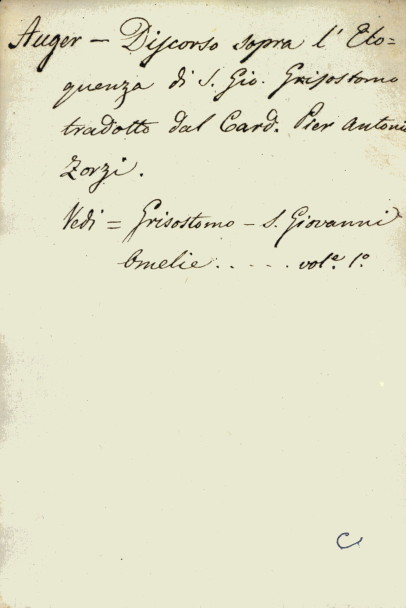 Auger — Discorso sopra l'Elo=
quenza di S. Gio. Grisostomo
tradotto dal Card. Pier Antonio
Zorzi.
Vedi = Grisostomo – S. Giovanni
Omelie . . . . . vol.e 1.o
C